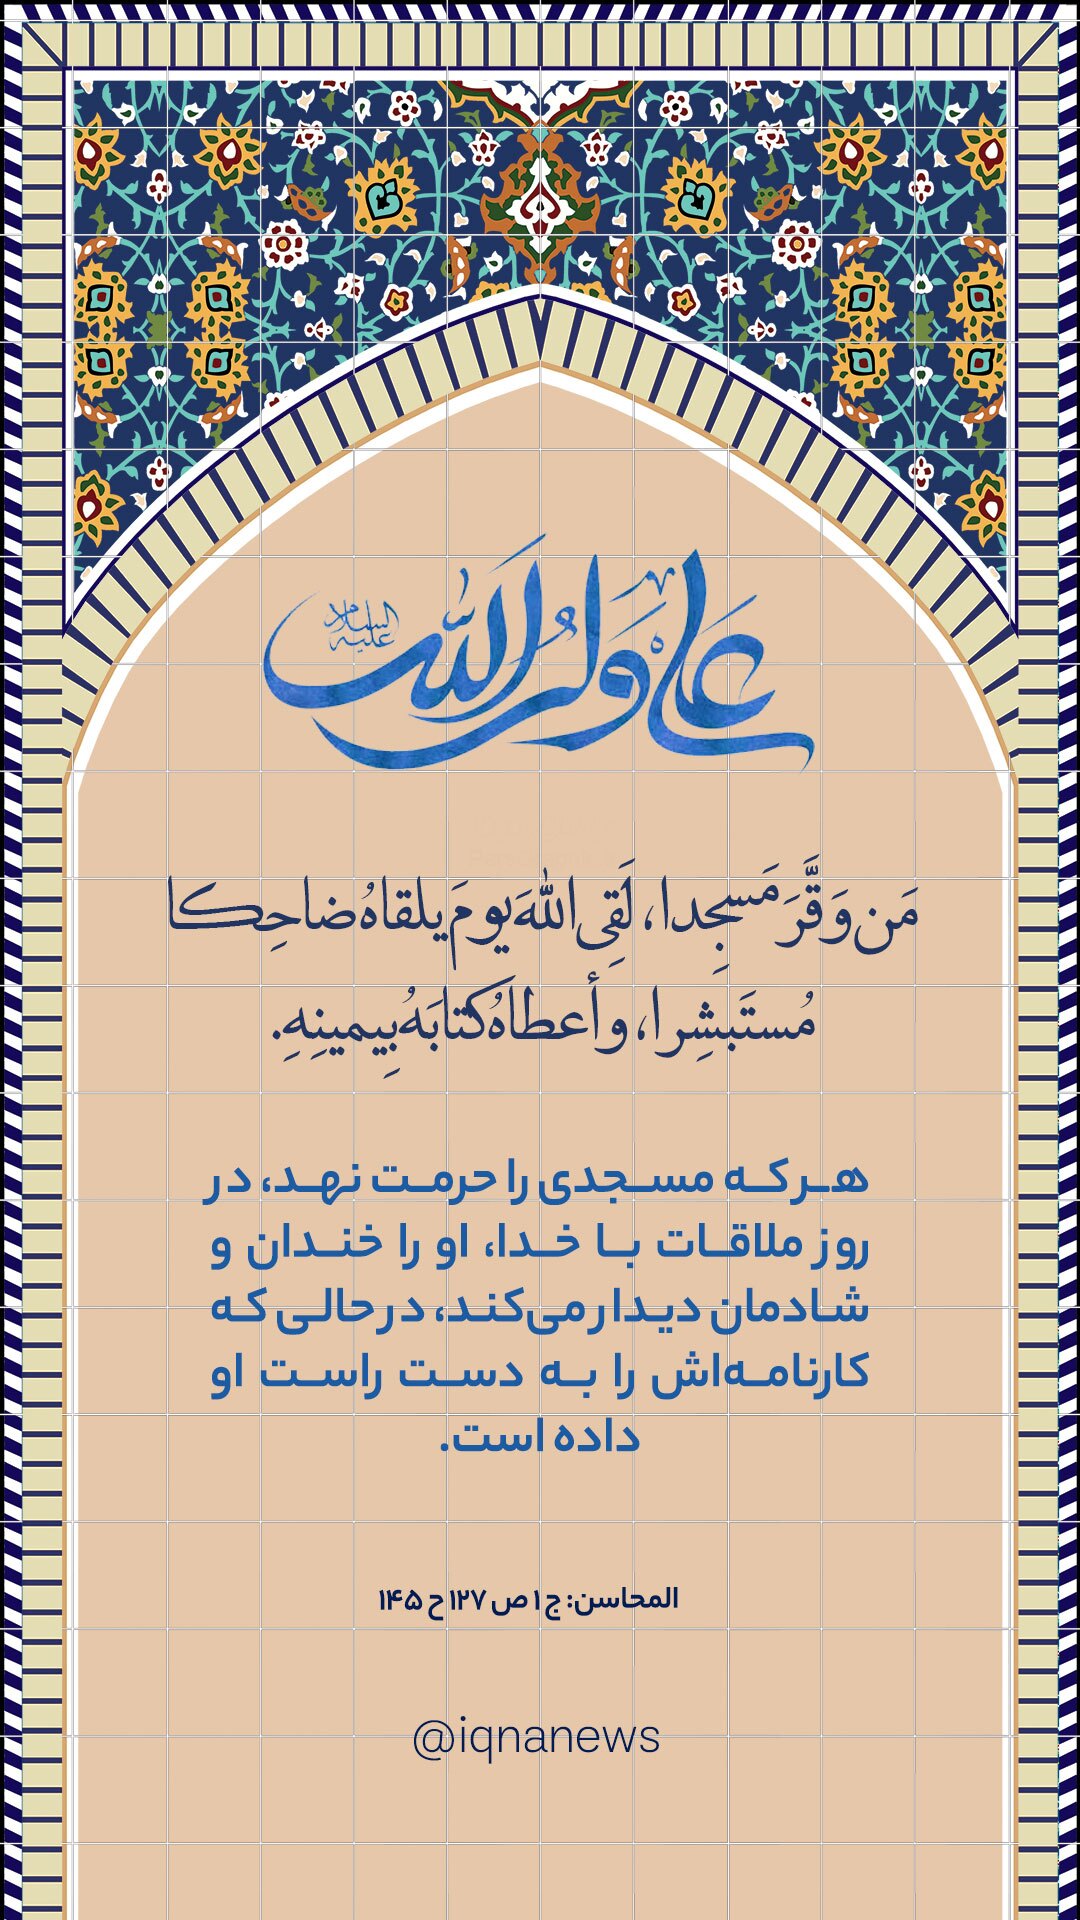 علی ولی الله
علیه السلام
مَن وَقَّرَ مَسجِدا، لَقِیَ اللهَ یومَ یلقاهُ ضاحِکا
مُستَبشِرا، و أعطاهُ کتابَهُ بِیمینِهِ.
هر که مسجدی را حرمت نهد، در
روز ملاقات با خدا، او را خندان و
شادمان دیدار می‌کند، در حالی که
کارنامه‌اش را به دست راست او
داده است.
المحاسن: ج ۱ ص ۱۲۷ ح ۱۴۵
@iqnanews